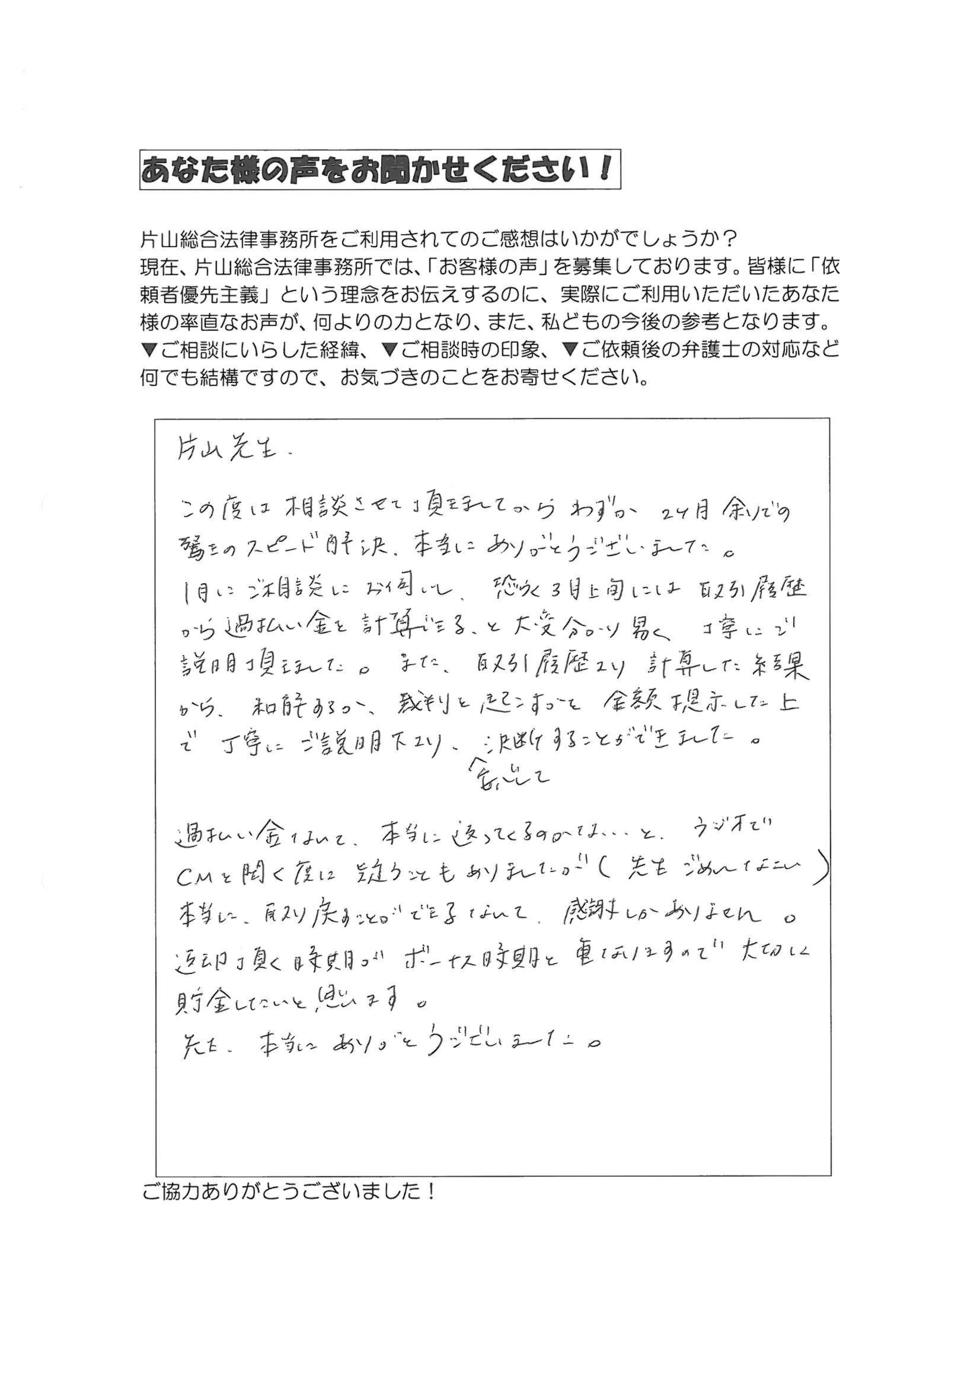 あなた様の声をお聞かせください!
片山総合法律事務所をご利用されてのご感想はいかがでしょうか?
現在、片山総合法律事務所では、「お客様の声」を募集しております。皆様に「依
頼者優先主義」という理念をお伝えするのに、実際にご利用いただいたあなた
様の率直なお声が、何よりの力となり、また、私どもの今後の参考となります。
▼ご相談にいらした経緯、▼ご相談時の印象、▼ご依頼後の弁護士の対応など
何でも結構ですので、お気づきのことをお寄せください。
片山先生.
この度は相談させて頂きましてからわずか2ヶ月余りでの
驚きのスピード解決、本当にありがとうございました。
1月にご相談にお伺いし、恐らく3月上旬には取引履歴
から過払い金を計算できる、と大変分かり易く、丁寧にご
説明頂きました。また、取引履歴より計算した結果
から、和解するか、裁判を起こすかを金額提示した上
で丁寧にご説明下さり、決断することができました。
安心して
過払い金なんて、本当に返ってくるのかな…と、ラジオで
CMを聞く度に疑うこともありましたが(先生ごめんなさい)
本当に、取り戻すことができるなんて、感謝しかありません。
返却頂く時期がボーナス時期と重なりますので大切に
貯金したいと思います。
先生、本当にありがとうございました。
ご協力ありがとうございました!